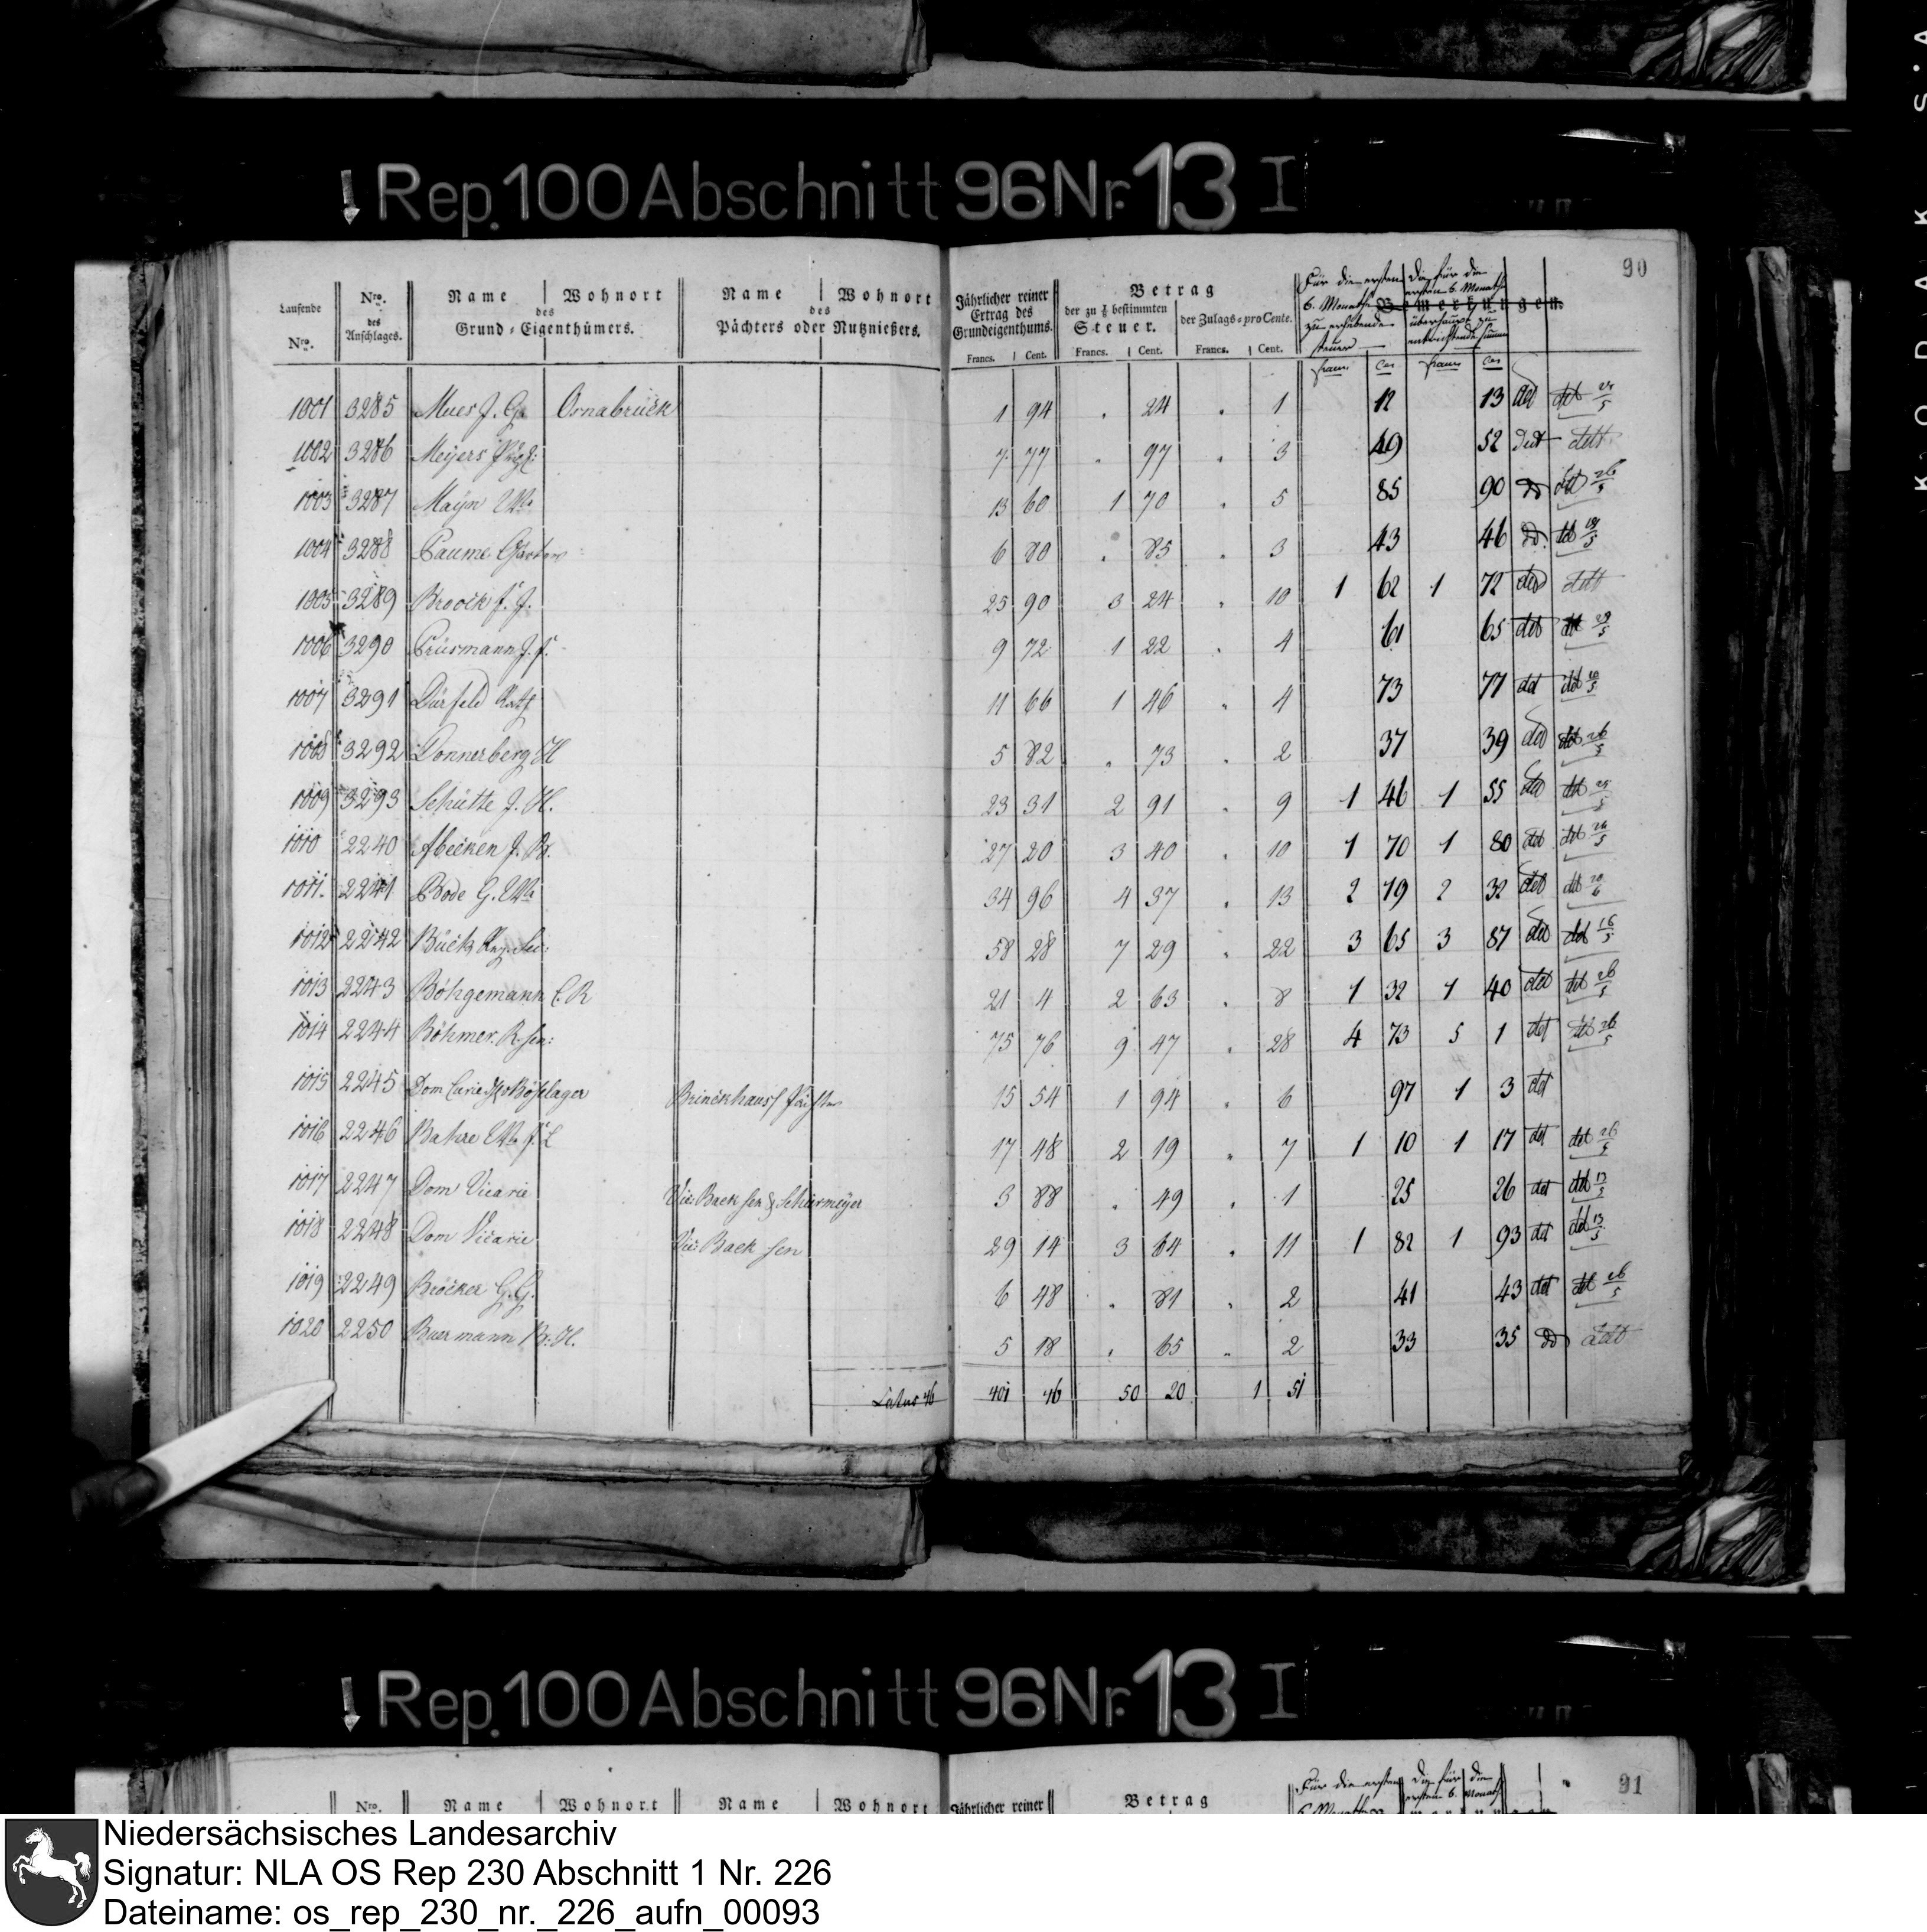 Rep. 100 Abschnitt 96 Nr. 13 I
90
Laufende Nro. | Nro. des Anschlages. | Name Wohnort des Grund-Eigenthümers. | Name Wohnort des Pächters oder Nutznießers. | Jährlicher reiner Ertrag des Grundeigenthums. Francs. Cent. | Betrag der zu 1/8 bestimmten Steuer. Francs. Cent. | der Zulags-pro Cente. Francs. Cent. | Für die ersten 6. Monathe zu erhebende Steuer | Die für die ersten 6. Monathe überhaupt zu entrichtende Summe | Bemerkungen.
francs Cen francs Cen
1001 3285 Mues J. G. Osnabrück 1 94 . 24 . 1 12 13 det det
1002 3286 Meijers 7 77 . 97 . 3 49 52 dett dett
1003 3287 Maijn Ww 13 60 1 70 . 5 85 90 do det 26/5
1004 3288 6 80 . 85 . 3 43 46 do. det 19/5
1005 3289 Broock F. J. 25 90 3 24 . 10 1 62 1 72 det dett
1006 3290 Prüsmann J. F. 9 72 1 22 . 4 61 65 det det 29/5
1007 3291 Dürfeld 11 66 1 46 . 4 73 77 det det
1008 3292 Donnerberg H 5 82 . 73 . 2 37 39 det det 26/5
1009 3293 Schütte J. H. 23 31 2 91 . 9 1 46 1 55 det det 25/5
1010 2240 Abeken J. B. 27 20 3 40 . 10 1 70 1 80 det det 26/5
1011 2241 Bode G. Ww 34 96 4 37 . 13 2 19 2 32 det det
1012 2242 Bück 58 28 7 29 . 22 3 65 3 87 det det 16/5
1013 2243 Böhgemann C. R 21 4 2 63 . 8 1 32 1 40 det det 26/5
1014 2244 Böhmer R. sen: 75 76 9 47 . 28 4 73 5 1 det det 26/5
1015 2245 Dom Böselager Brinckhaus Pächter 15 54 1 94 . 6 97 1 3 det
1016 2246 Bahre Ww 17 48 2 19 . 7 1 10 1 17 det det 26/5
1017 2247 Dom Vicarie Vic: Baek sen & Schürmeijer 3 88 . 49 . 1 25 26 det det 13/5
1018 2248 Dom Vicarie Vic: Baek sen 29 14 3 64 . 11 1 82 1 93 det det 13/5
1019 2249 Bröcker G. G. 6 48 . 81 . 2 41 43 det det 26/5
1020 2250 Buermann B. H. 5 18 . 65 . 2 33 35 do dett
Latus 401 46 50 20 1 51
Rep. 100 Abschnitt 96 Nr. 13 I
91
Nro. Name Wohnort Name Wohnort Jährlicher reiner Betrag Für die ersten Die für die
ersten 6. Monath
Niedersächsisches Landesarchiv
Signatur: NLA OS Rep 230 Abschnitt 1 Nr. 226
Dateiname: os_rep_230_nr._226_aufn_00093